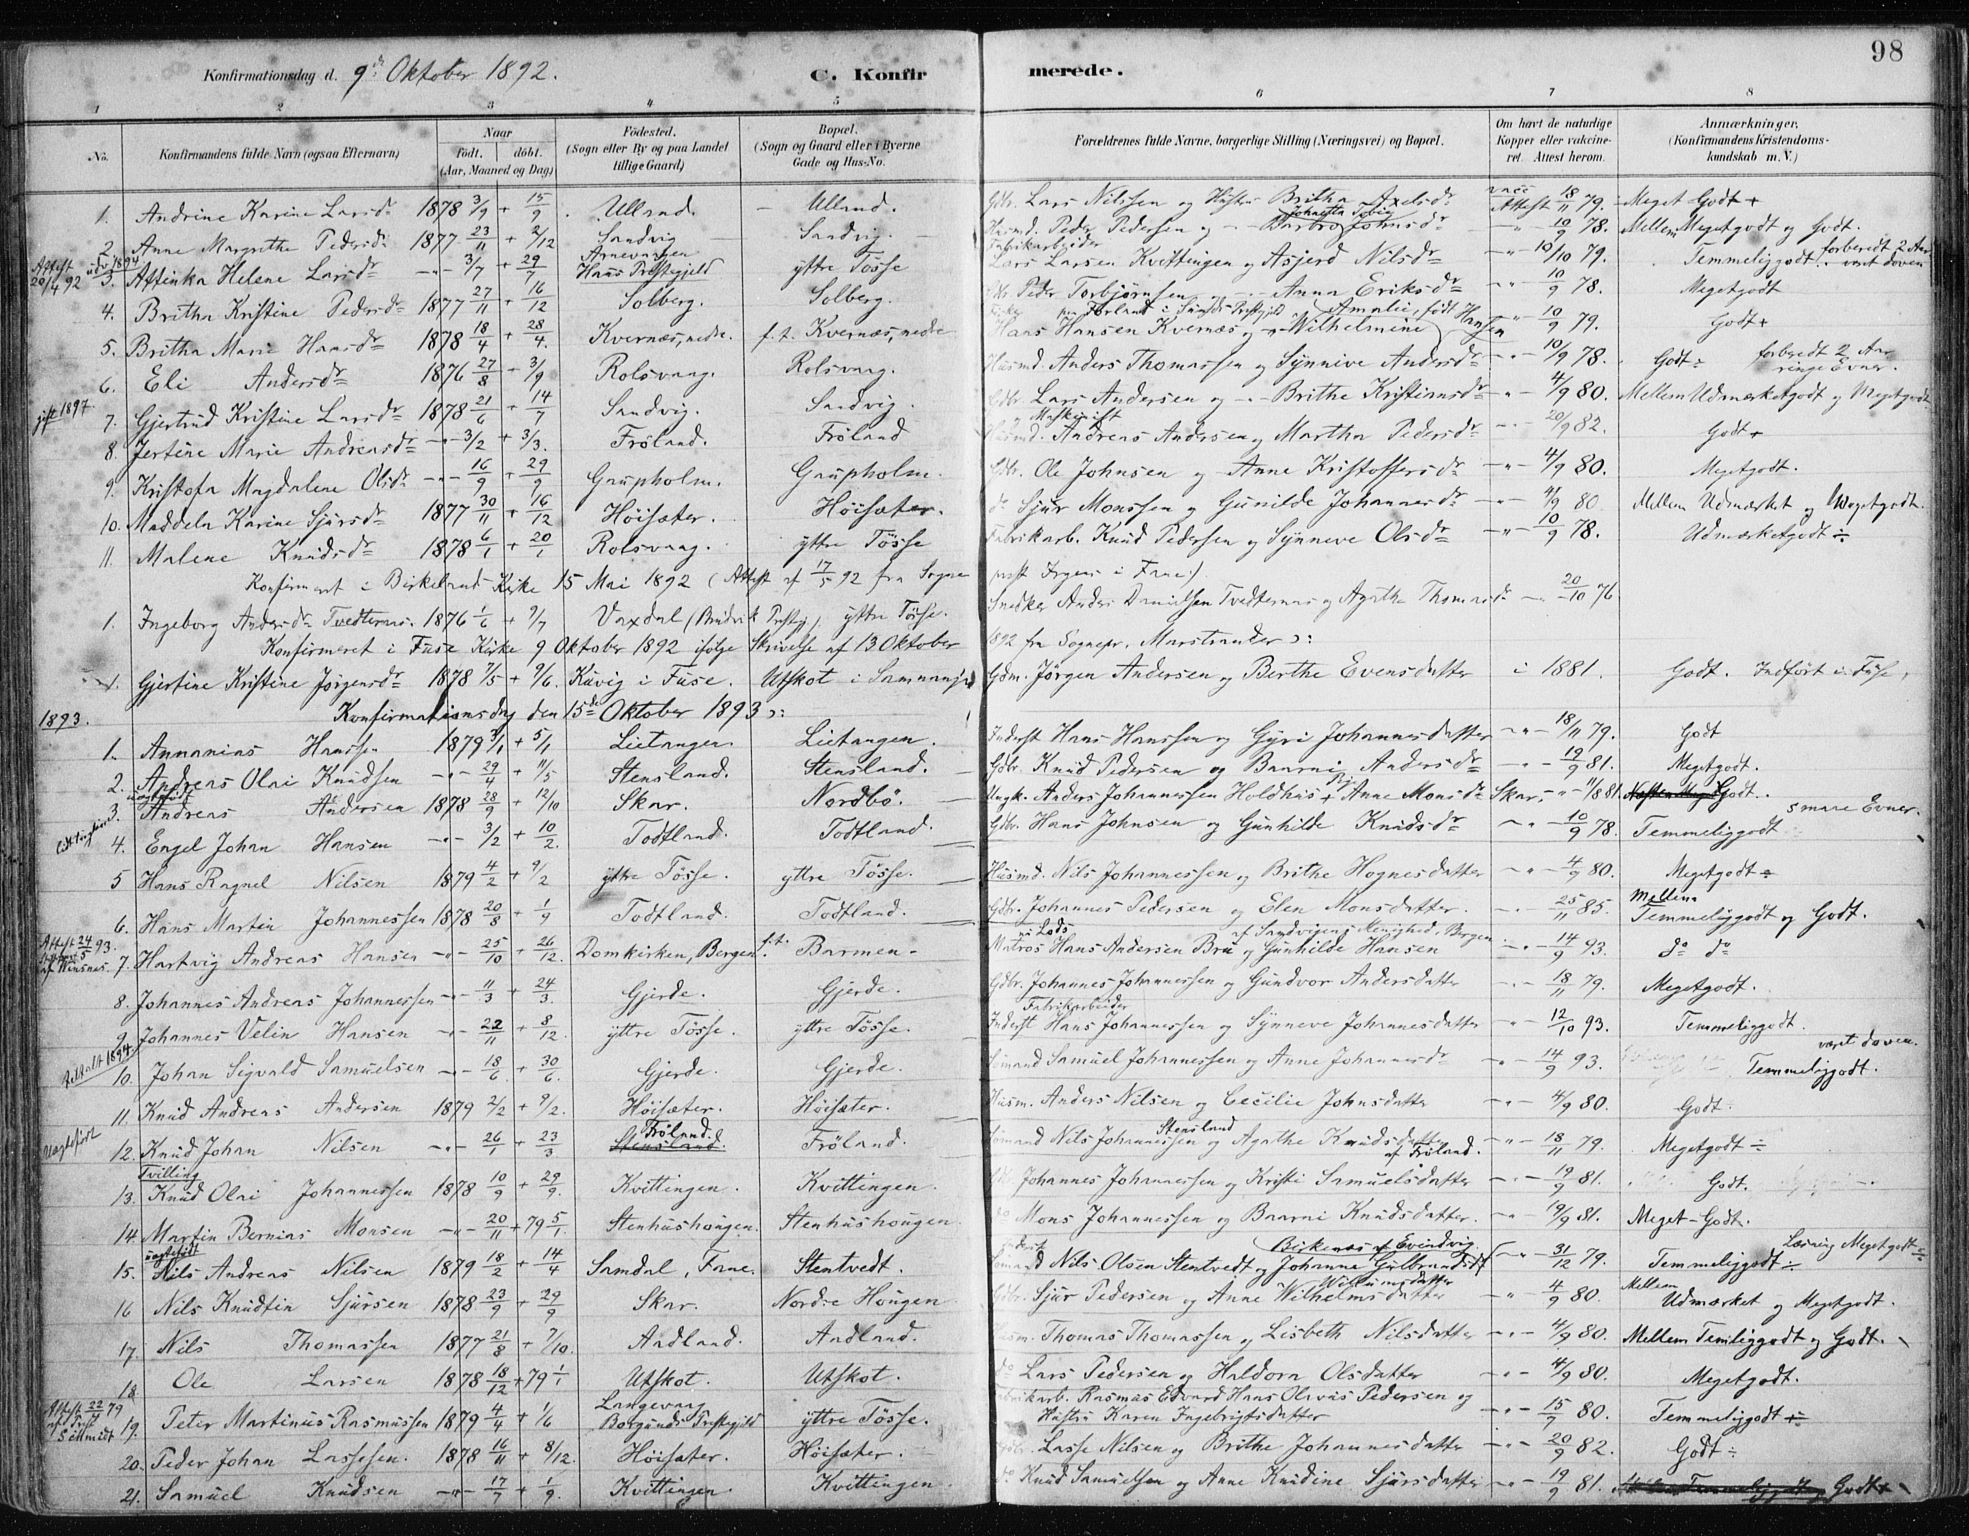 98
Konfirmationsdag d. 9de Oktober 1892. C. Konfirmerede.
1 2 3 4 5 6 7 8
No. Konfirmandens fulde Navn (ogsaa Efternavn) Naar født, døbt. (Aar, Maaned og Dag) Fødested. (Sogn eller By og paa Landet tillige Gaard) Bopæl. (Sogn og Gaard eller i Byerne Gade og Hus-No. Forældrenes fulde Navne, borgerlige Stilling (Næringsvei) og Bopæl. Om havt de naturlige Kopper eller vakcineret. Attest herom. Anmærkninger. (Konfirmandens Kristendomskundskab m. V.)
1. Andrine Karine Larsdr 1878 3/9 + 15/9 Ulland. Ulland. Gdbr. Lars Nilssen og Hustru Britha Axelsdr vacc Attest 18/11 79. Meget Godt +
2. Anne Margrethe Pedersdr 1877 23/11 + 2/12 Sandvig Sandvig. Husmd. Peder Pedersen og 10/9 78. Mellem Megetgodt og Godt.
3. Attinka Helene Larsdr 3/7 + 29/7 Arnevaagen Haus Prestegjeld yttre Tösse Fabrikarbeider Lars Larsen Kvittingen og Asjerd Nilsdr 10/10 79. Temmeliggodt. forberedt 2 Aar været doven
4. Britha Kristine Pedersdr 1877 27/11 + 16/12 Solberg. Solberg. Peder Torbjørnsen Anna Eriksdr 10/9 78. Megetgodt
5. Britha Marie Hansdr 1878 18/4 + 28/4. Kvernæs, nedre. f. t. Kvernæs, nedre Hans Hansen Kvernæs og Wilhelmine Amalie, født Hansen 10/9 79. Godt +
6. Eli Andersdr 1876 27/8 + 3/9 Rolsvaag. Rolsvaag. Husmd. Anders Thomassen og Synnive Andersdr 10/9 78. Godt ÷ forberedt 2 Aar ringe Evner.
gift 1897. 7. Gjertrud Kristine Larsdr 1878 21/6 + 14/7 Sandvig. Sandvig Gdbr. Lars Andersen og Brithe Kristiansdr 4/9 80. Mellem Udmærketgodt og Megetgodt
8. Jertine Marie Andreasdr 3/2 + 3/3. Fröland. Fröland Husmd. Andreas Andersen og Martha Pedersdr 20/9 82. Godt +
9. Kristofa Magdalene Olsdr 16/9 + 29/9 Grupholm. Grupholm. Gdbr. Ole Johnsen og Anne Kristoffersdr 4/9 80. Megetgodt.
10. Maddela Karine Sjursdr 1877 30/11 + 16/12 Höisæter. Höisæter. do Sjur Monssen og Gunilde Johannesdr 4/9 80 Mellem Udmærket og Megetgodt.
11. Malene Knudsdr 1878 6/1 + 20/1 Rolsvaag. yttre Tösse Fabrikarb. Knud Pedersen og Synneve Olsdr 10/9 78. Udmærketgodt ÷
Konfirmeret i Birkeland Kirke 15 Mai 1892 (Attest af 17/5 92 fra Sogneprest Irgens i Fane).
1. Ingeborg Andersdr Tvedternæs. 1876 1/6 + 9/7 Vaxdal (Bruvik Prestgj.) yttre Tösse. Snedker Anders Danielsen Tvedternæs og Agathe Thomasdr 20/10 76
Konfirmeret i Fuse Kirke 9 Oktober 1892 ifølge Skrivelse af 13 Oktober 1892 fra Sognepr. Marstrander:
1. Gjertine Kristine Jørgensdr 1878 7/5 + 9/6. Kuvig i Fuse. Utskot i Samnanger Gdm. Jörgen Andersen og Berthe Evensdatter i 1881. Godt. Indført i Fuse.
1893. Konfirmationsdag den 15de Oktober 1893:
1. Annanias Hanssen 1879 3/1 + 5/1 Lietangen Lietangen. Inderst Hans Hanssen og Gyri Johannesdatter 18/11 79. Godt
2. Andreas Olai Knudsen 29/4 + 11/5 Stensland. Stensland. Gdbr. Knud Pedersen og Baarni Andersdr 19/9 81. Megetgodt.
3. uægtefødt Andreas Andersen 1878 28/9 + 12/10 Skar. Nordbö. Ungk. Anders Johannessen Holdhus + Pig. Anne Monsdr Skar. 11/8 81. Godt.
4. Engel Johan Hansen 3/2 + 10/2. Todtland. Todtland. Gdbr. Hans Johnsen og Gunhilde Knudsdr 10/9 78. Temmeliggodt smaa Evner.
5 Hans Ragnel Nilsen 1879 4/2 + 9/2 yttre Tösse. yttre Tösse. Husmd. Nils Johannessen og Brithe Hognesdatter 4/9 80. Megetgodt ÷
6. Hans Martin Johannessen 1878 20/8 + 1/9 Todtland. Todtland. Gdbr. Johannes Pedersen og Elen Monsdatter. 25/11 85. Mellem Temmeliggodt og Godt.
7. Hartvig Andreas Hansen 25/10 + 26/12. Domkirken, Bergen. f. t. Barmen Matros Hans Andersen Bru og Gunhilde Hansen af Sandvigens Menighed, Bergen 14/9 93. do do
8. Johannes Andreas Johannessen 11/3 + 24/3. Gjerde. Gjerde. Gdbr. Johannes Johannessen og Gundvor Andersdatter 18/11 79. Megetgodt.
9. Johannes Velin Hansen 22/11 + 8/12 yttre Tösse. yttre Tösse. Inderst Fabrikarbeider Hans Johannessen og Synneve Johannesdatter 12/10 93. Temmeliggodt.
10. Johan Sigvald Samuelsen 18/6. + 30/6. Gjerde. Gjerde. Sömand Samuel Johannessen og Anne Johannesdr 14/9 93. været doven. Temmeliggodt.
11. Knud Andreas Andersen 1879 2/2 + 9/2. Höisæter. Höisæter. Husm. Anders Nilsen og Cecilie Johnsdatter 4/9 80. Godt.
Uægtefødt 12. Knud Johan Nilsen 26/1 + 23/3 Fröland. Stensland. Fröland. Sömand Nils Johannessen Stensland og Agathe Knudsdatter af Fröland. 18/11 79. Megetgodt ÷
13. Tvilling Knud Olai Johannessen 1878 10/9 + 29/9. Kvittingen. Kvittingen. Johannes Johannessen og Kristi Samuelsdatter 19/9 81. Godt.
14. Martin Bernias Monsen 20/11 + 79 5/1. Stenhushougen. Stenhushougen. do Mons Johannessen og Baarni Knudsdatter. 19/9 81. Meget-Godt.
15. uægtefødt Nils Andreas Nilsen 1879 18/2 + 14/4 Samdal, Fane. Stentvedt. Sömand Nils Olsen Stentvedt og Johanne Gulbrandsdr Birkenæs af Evindvig 31/12 79. Temmeliggodt ÷ Læsning Megetgodt ÷
16 Nils Knudtin Sjursen 1878 23/9 + 29/9 Skar. Nordre Hougen Gdbr. Sjur Pedersen og Anne Wilhelmsdatter 4/9 80. Mellem Udmærket og Megetgodt.
17. Nils Thomassen 1877 21/8 + 7/10. Aadland. Aadland. Husm. Thomas Thomassen og Lisbeth Nilsdatter 4/9 80. Mellem Temliggodt og Godt.
18. Ole Larsen 1878 18/12 + 79 1/1 Utskot. Utskot. do Lars Pedersen og Haldora Olsdatter 4/9 80. Megetgodt.
19. Peter Martinus Rasmussen 1879 4/4 + 1/6 Langevaag Borgunds Prestegjeld yttre Tösse. Fabrikarb. Rasmus Edvard Hans Olavus Pedersen og Hustru Karen Ingebrigtsdatter 15/9 80. Temmeliggodt ÷
20. Peder Johan Lassesen. 1878 16/11 + 8/12. Höisæter. Höisæter. Gdbr. Lasse Nilsen og Brithe Johannesdatter 20/9 82. Godt ÷
21. Samuel Knudsen 17/7 + 1/9. Kvittingen. Kvittingen do Knud Samuelsen og Anne Knudine Sjursdatter 19/9 81. Godt +